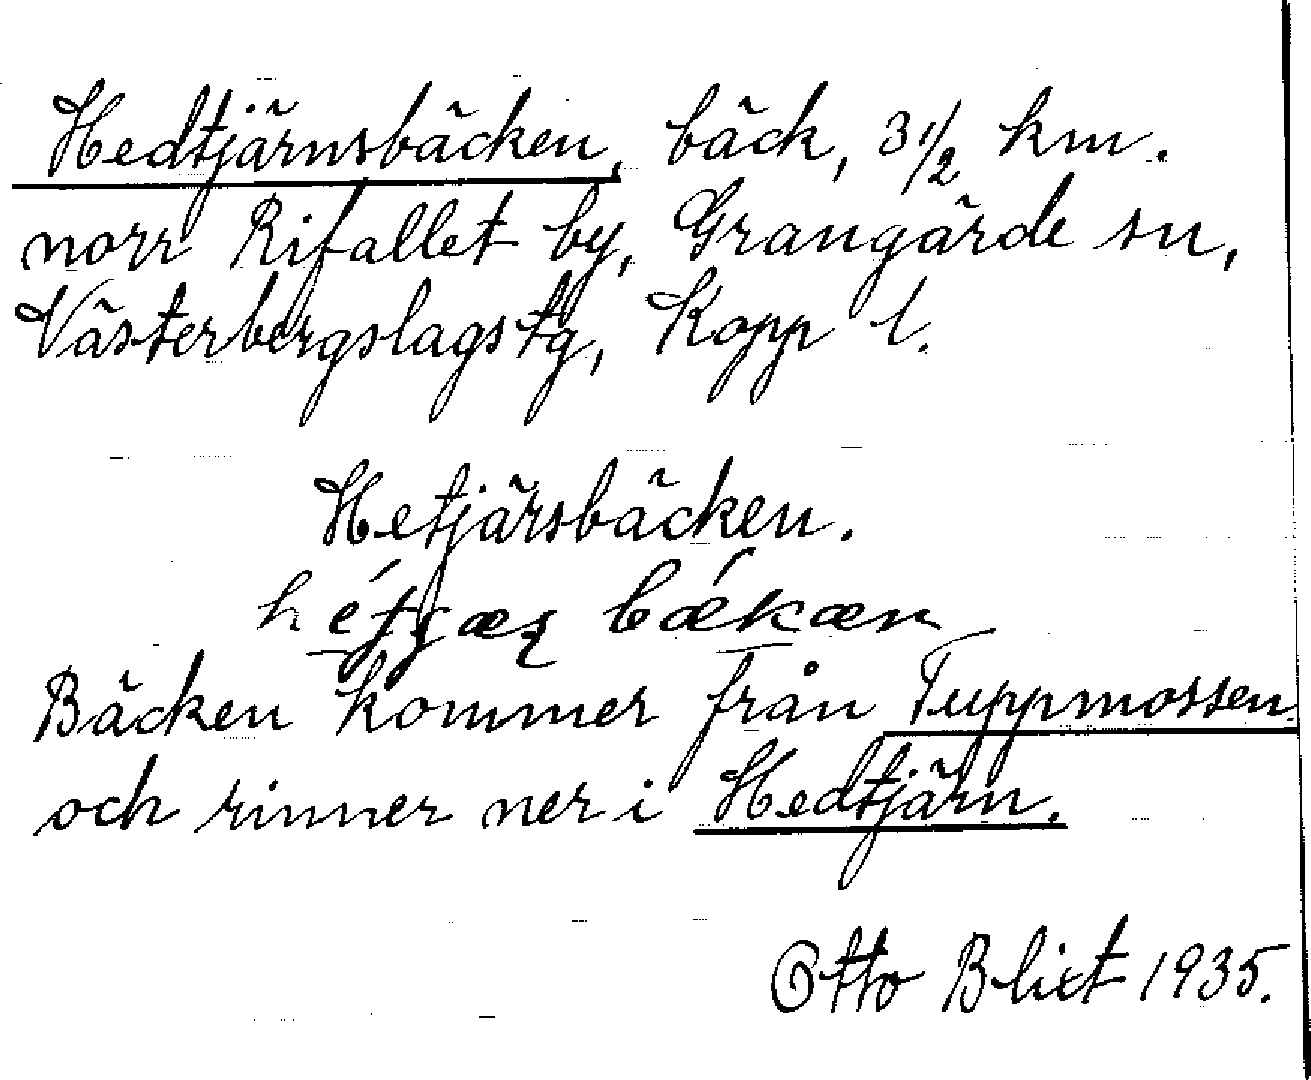 Hedtjärnsbäcken, bäck, 3 1/2 km.
norr Rifallet by, Grangärde sn,
Västerbergslags tg, Kopp l.
Hetjärsbäcken.
Bäcken kommer från Tuppmossen
och rinner ner i Hedtjärn.
Otto Blixt 1935.